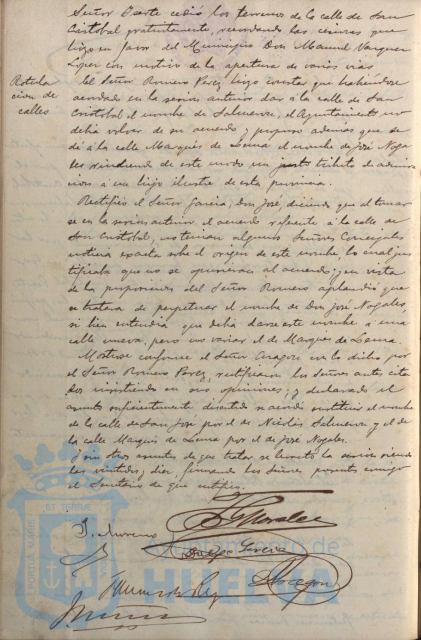 Señor Duarte cedió los terrenos de la calle de San
Cristobal gratuitamente, recordando las cesiones que
hizo en favor del Municipio Don Manuel Vazquez
Lopez con motivo de la apertura de varias vias
Rotula
cion de
calles
El Señor Romero Perez hizo constar que habiéndose
acordado en la sesion anterior dar á la calle de San
Cristobal el nombre de Salmeron, el Ayuntamiento no
debia volver de su acuerdo y propuso ademas que se
dé á la calle Marqués de Lema el nombre de José Noga
les rindiendo de este modo un justo tributo de admira
cion á un hijo ilustre de esta provincia.
Rectificó el Señor Garcia, Don José, diciendo que al tomar
se en la sesion anterior el acuerdo referente á la calle de
San Cristobal, no tenian algunos Señores Concejales
noticia exacta sobre el origen de este nombre lo cual jus
tificaba que no se opusieran al acuerdo; y en vista
de la proposicion del Señor Romero aplaudió que
se tratara de perpetuar el nombre de Don José Nogales,
si bien entendia que debia darse este nombre á una
calle nueva, pero no variar el de Marques de Lema.
Mostrose conforme el Señor Aragon con lo dicho por
el Señor Romero Perez, rectificaron los Señores antes cita
dos insistiendo en sus opiniones; y declarado el
asunto suficientemente discutido se acordó sustituir el nombre
de la calle de San José por el de Nicolás Salmeron y el de
la calle Marqués de Lema por el de José Nogales.
Y sin otros asuntos de que tratar se levantó la sesion siendo
las veintidos, diez, firmando los Señores presentes conmigo
el Secretario de que certifico.
Morales
J. Moreno
José Garcia
Aragon
Ayuntamiento de
HUELVA
PORTUS MARIS
ET TERRAE